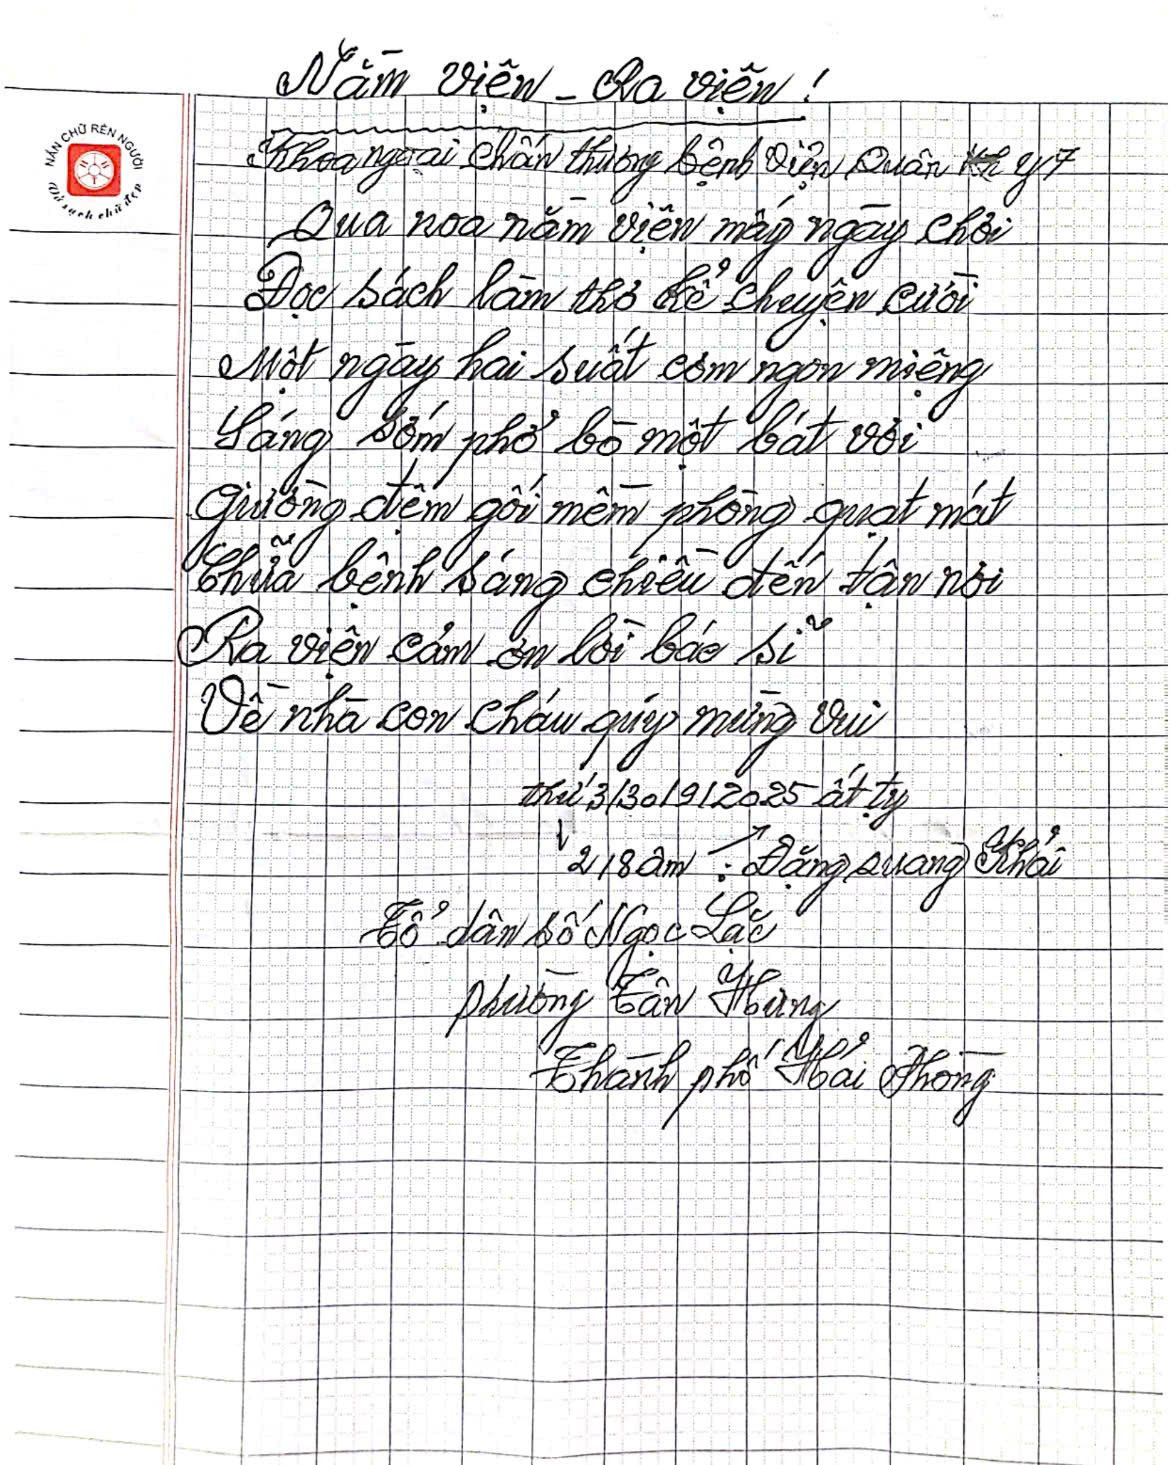 NẮN CHỮ RÈN NGƯỜI
Vở sạch chữ đẹp
Nằm viện - Ra viện!
Khoa ngoại chấn thương bệnh viện Quân y 7
Qua noa nằm viện mấy ngày chơi
Đọc sách làm thơ kể chuyện cười
Một ngày hai suất cơm ngon miệng
Sáng sớm phở bò một bát vơi
Giường đệm gối mềm phòng quạt mát
Chữa bệnh sáng chiều đến tận nơi
Ra viện cảm ơn lời bác sĩ
Về nhà con cháu qúy mừng vui
thứ 3/30/9/2025 ất tỵ
2/8 âm : Đặng quang Khải
Tổ dân số Ngọc Lặc
phường Tân Hưng
Thành phố Hải Phòng